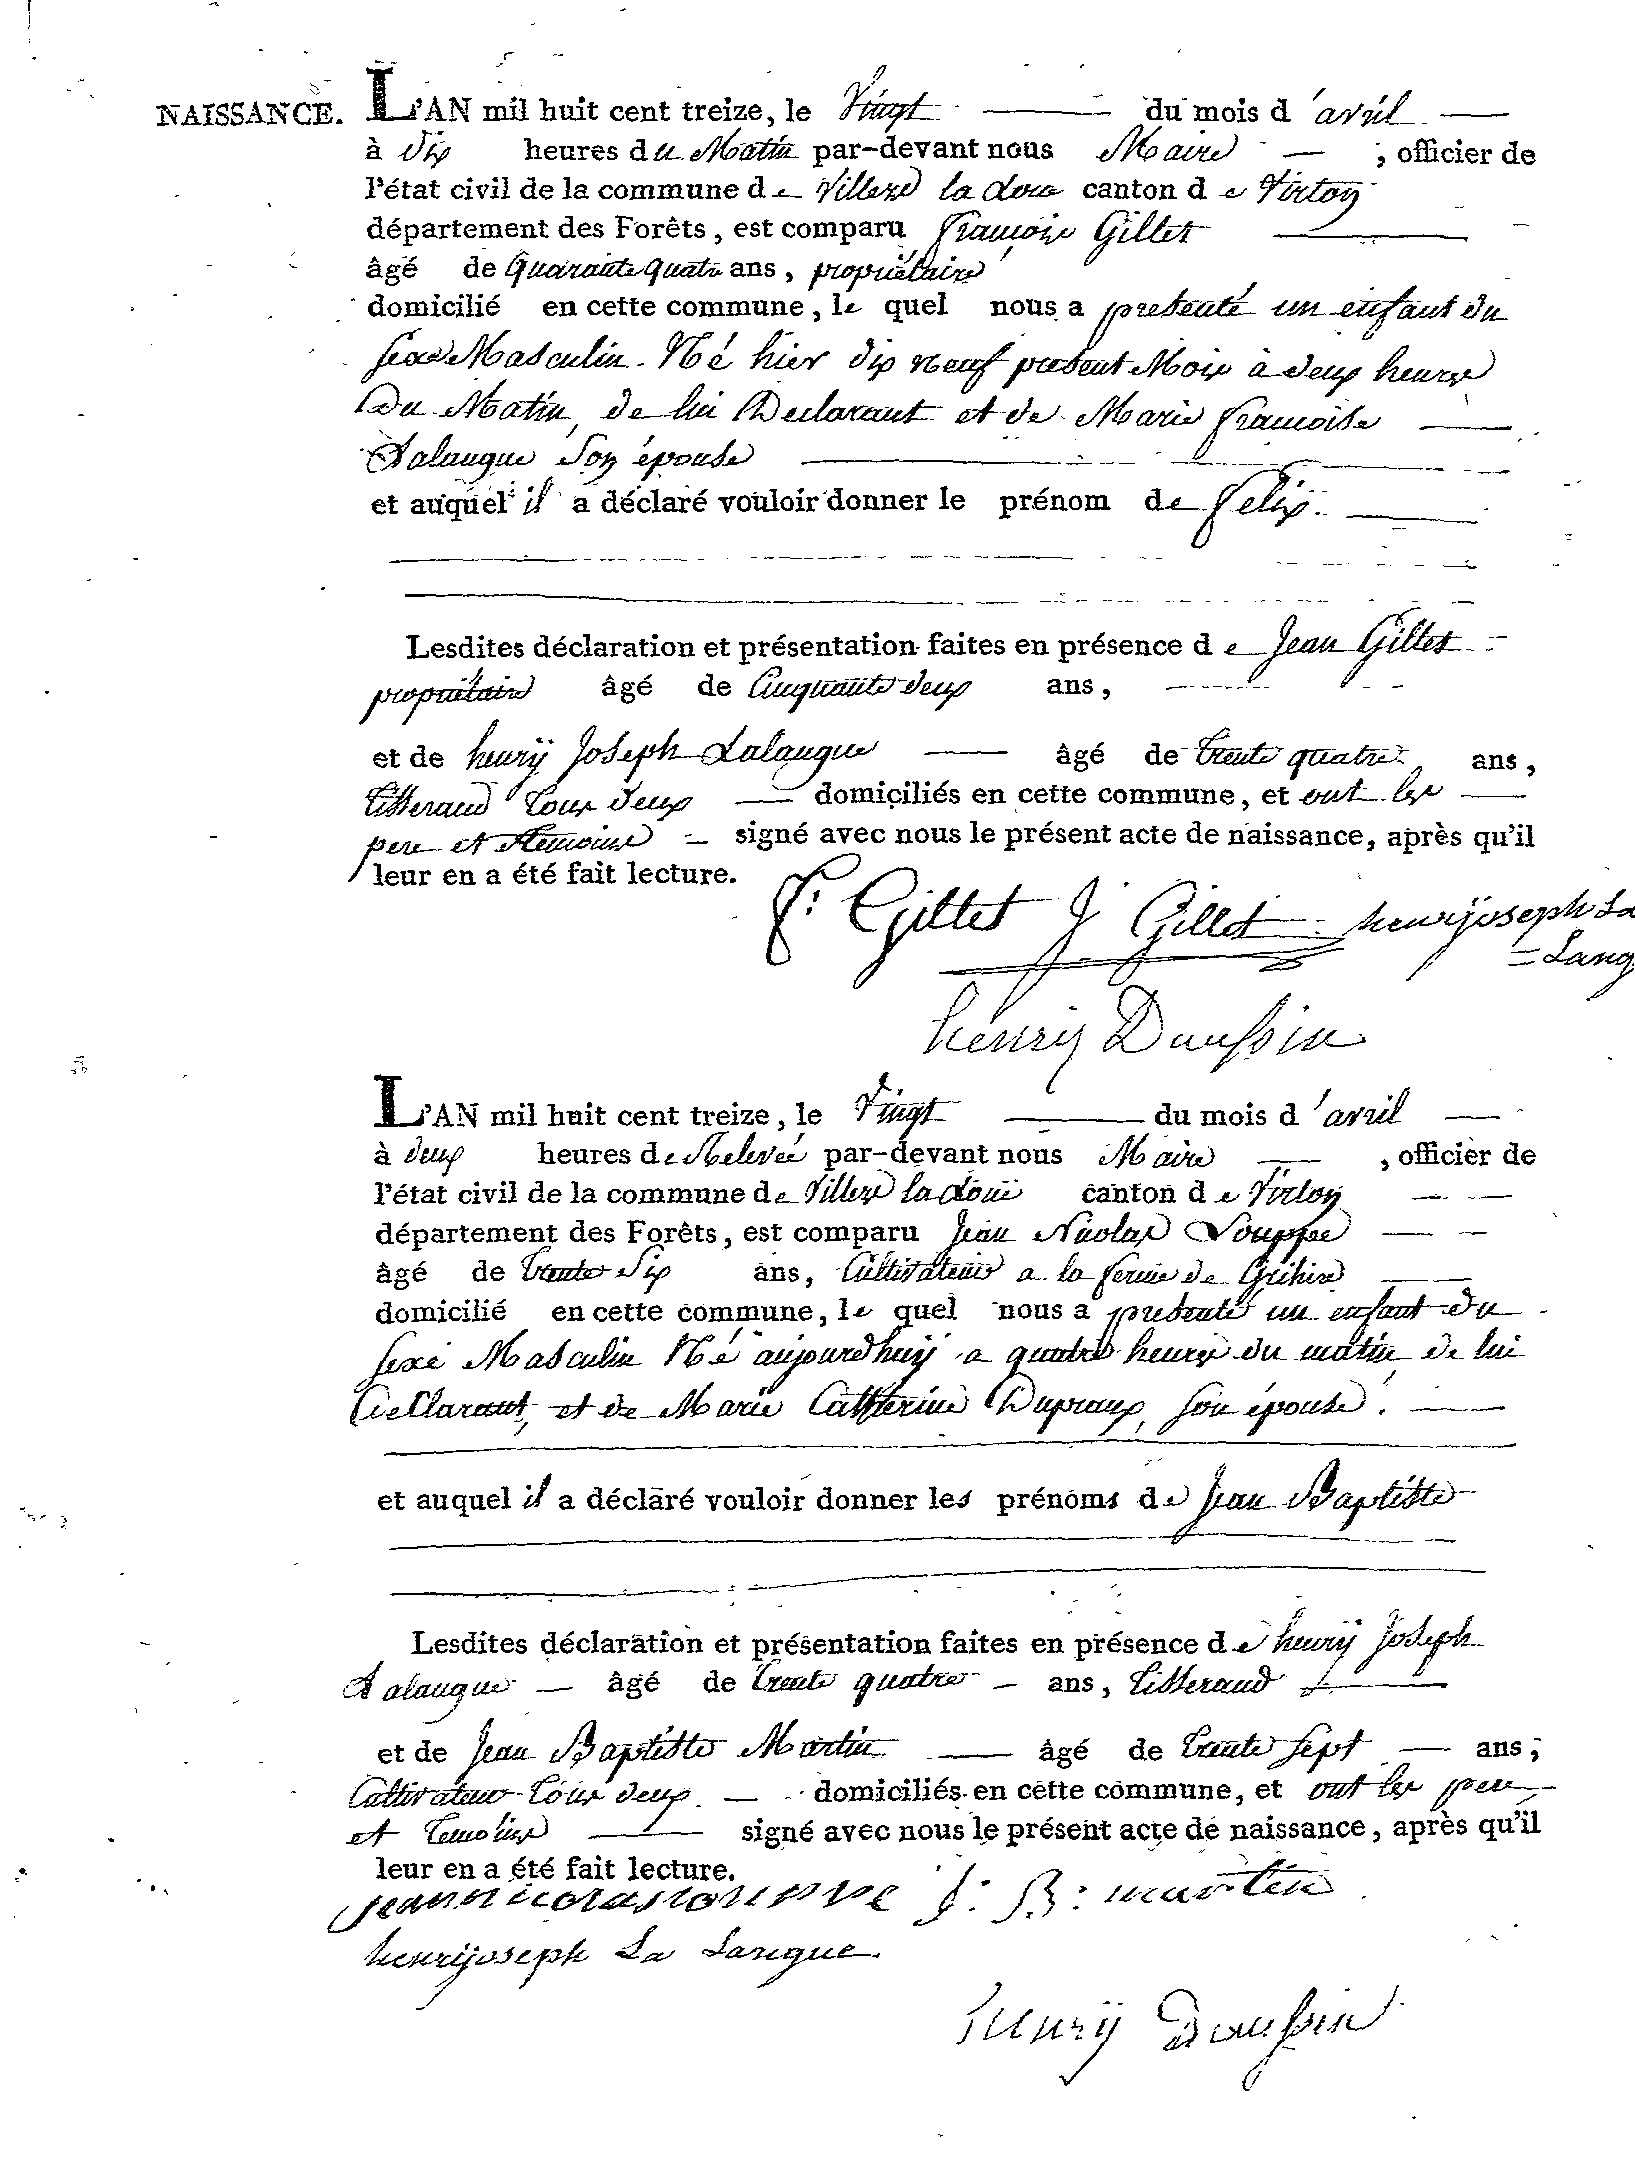 NAISSANCE. L'AN mil huit cent treize, le Vingt du mois d'avril
à dix heures du Matin par-devant nous Maire, officier de
l'état civil de la commune de Villers la Loue canton de Virton
département des Forêts, est comparu françois Gillet
âgé de Quarante quatre ans, propriétaire
domicilié en cette commune, le quel nous a presenté un enfant du
sexe Masculin. Né hier dix neuf present Mois à deux heures
Du Matin, de lui Declarant et de Marie françoise
Lalangue son épouse
et auquel il a déclaré vouloir donner le prénom de felix.
Lesdites déclaration et présentation faites en présence de Jean Gillet
propriétaire âgé de Cinquante deux ans,
et de henrÿ Joseph Lalangue âgé de trente quatre ans,
tisserand tous deux domiciliés en cette commune, et ont les
pere et temoins signé avec nous le présent acte de naissance, après qu'il
leur en a été fait lecture.
f: Gillet J Gillet henrÿjoseph La
=Lang
henry Doussin
L'AN mil huit cent treize, le Vingt du mois d'avril
à deux heures de Relevée par-devant nous Maire, officier de
l'état civil de la commune de Villers la Loue canton de Virton
département des Forêts, est comparu Jean Nicolas Louppe
âgé de trente Six ans, Cultivateur a la ferme de
domicilié en cette commune, le quel nous a presenté un enfant du
sexe Masculin Né aujourdhuÿ a quatre heures du matin de lui
Declarant, et de Marie Catherine Dupraux, son épouse.
et auquel il a déclaré vouloir donner les prénoms de Jean Baptiste
Lesdites déclaration et présentation faites en présence de henrÿ Joseph
Lalangue âgé de trente quatre ans, tisserand
et de Jean Baptiste Martin âgé de trente sept ans,
Cultivateur tous deux domiciliés en cette commune, et ont les pere
et temoins signé avec nous le présent acte de naissance, après qu'il
leur en a été fait lecture.
jeannicolaslouppe j: B: martin
henrÿjoseph La Langue.
henrÿ Doussin